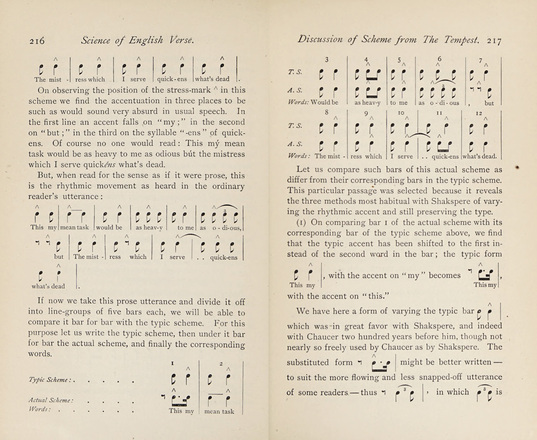 216 Science of English Verse.
The mist - ress which I serve quick-ens what's dead .
On observing the position of the stress-mark ^ in this
scheme we find the accentuation in three places to be
such as would sound very absurd in usual speech. In
the first line an accent falls on "my;" in the second
on "but;" in the third on the syllable "-ens" of quick-
ens. Of course no one would read: This mý mean
task would be as heavy to me as odious bút the mistress
which I serve quickéns what's dead.
But, when read for the sense as if it were prose, this
is the rhythmic movement as heard in the ordinary
reader's utterance:
This my mean task would be as heav-y to me as o-di-ous,
but The mist - ress which I serve . . quick-ens
what's dead .
If now we take this prose utterance and divide it off
into line-groups of five bars each, we will be able to
compare it bar for bar with the typic scheme. For this
purpose let us write the typic scheme, then under it bar
for bar the actual scheme, and finally the corresponding
words.
1 2
Typic Scheme: . . . . .
Actual Scheme: . . . .
Words: . . . . . . This my mean task
Discussion of Scheme from The Tempest. 217
3 4 5 6 7
T. S.
A. S.
Words: Would be as heav-y to me as o-di-ous , but
8 9 10 11 12
T. S.
A. S.
Words: The mist - ress which I serve . . quick-ens what's dead.
Let us compare such bars of this actual scheme as
differ from their corresponding bars in the typic scheme.
This particular passage was selected because it reveals
the three methods most habitual with Shakspere of vary-
ing the rhythmic accent and still preserving the type.
(1) On comparing bar 1 of the actual scheme with its
corresponding bar of the typic scheme above, we find
that the typic accent has been shifted to the first in-
stead of the second word in the bar; the typic form
, with the accent on "my" becomes
This my This my
with the accent on "this."
We have here a form of varying the typic bar
which was in great favor with Shakspere, and indeed
with Chaucer two hundred years before him, though not
nearly so freely used by Chaucer as by Shakspere. The
substituted form might be better written—
to suit the more flowing and less snapped-off utterance
of some readers—thus , in which is